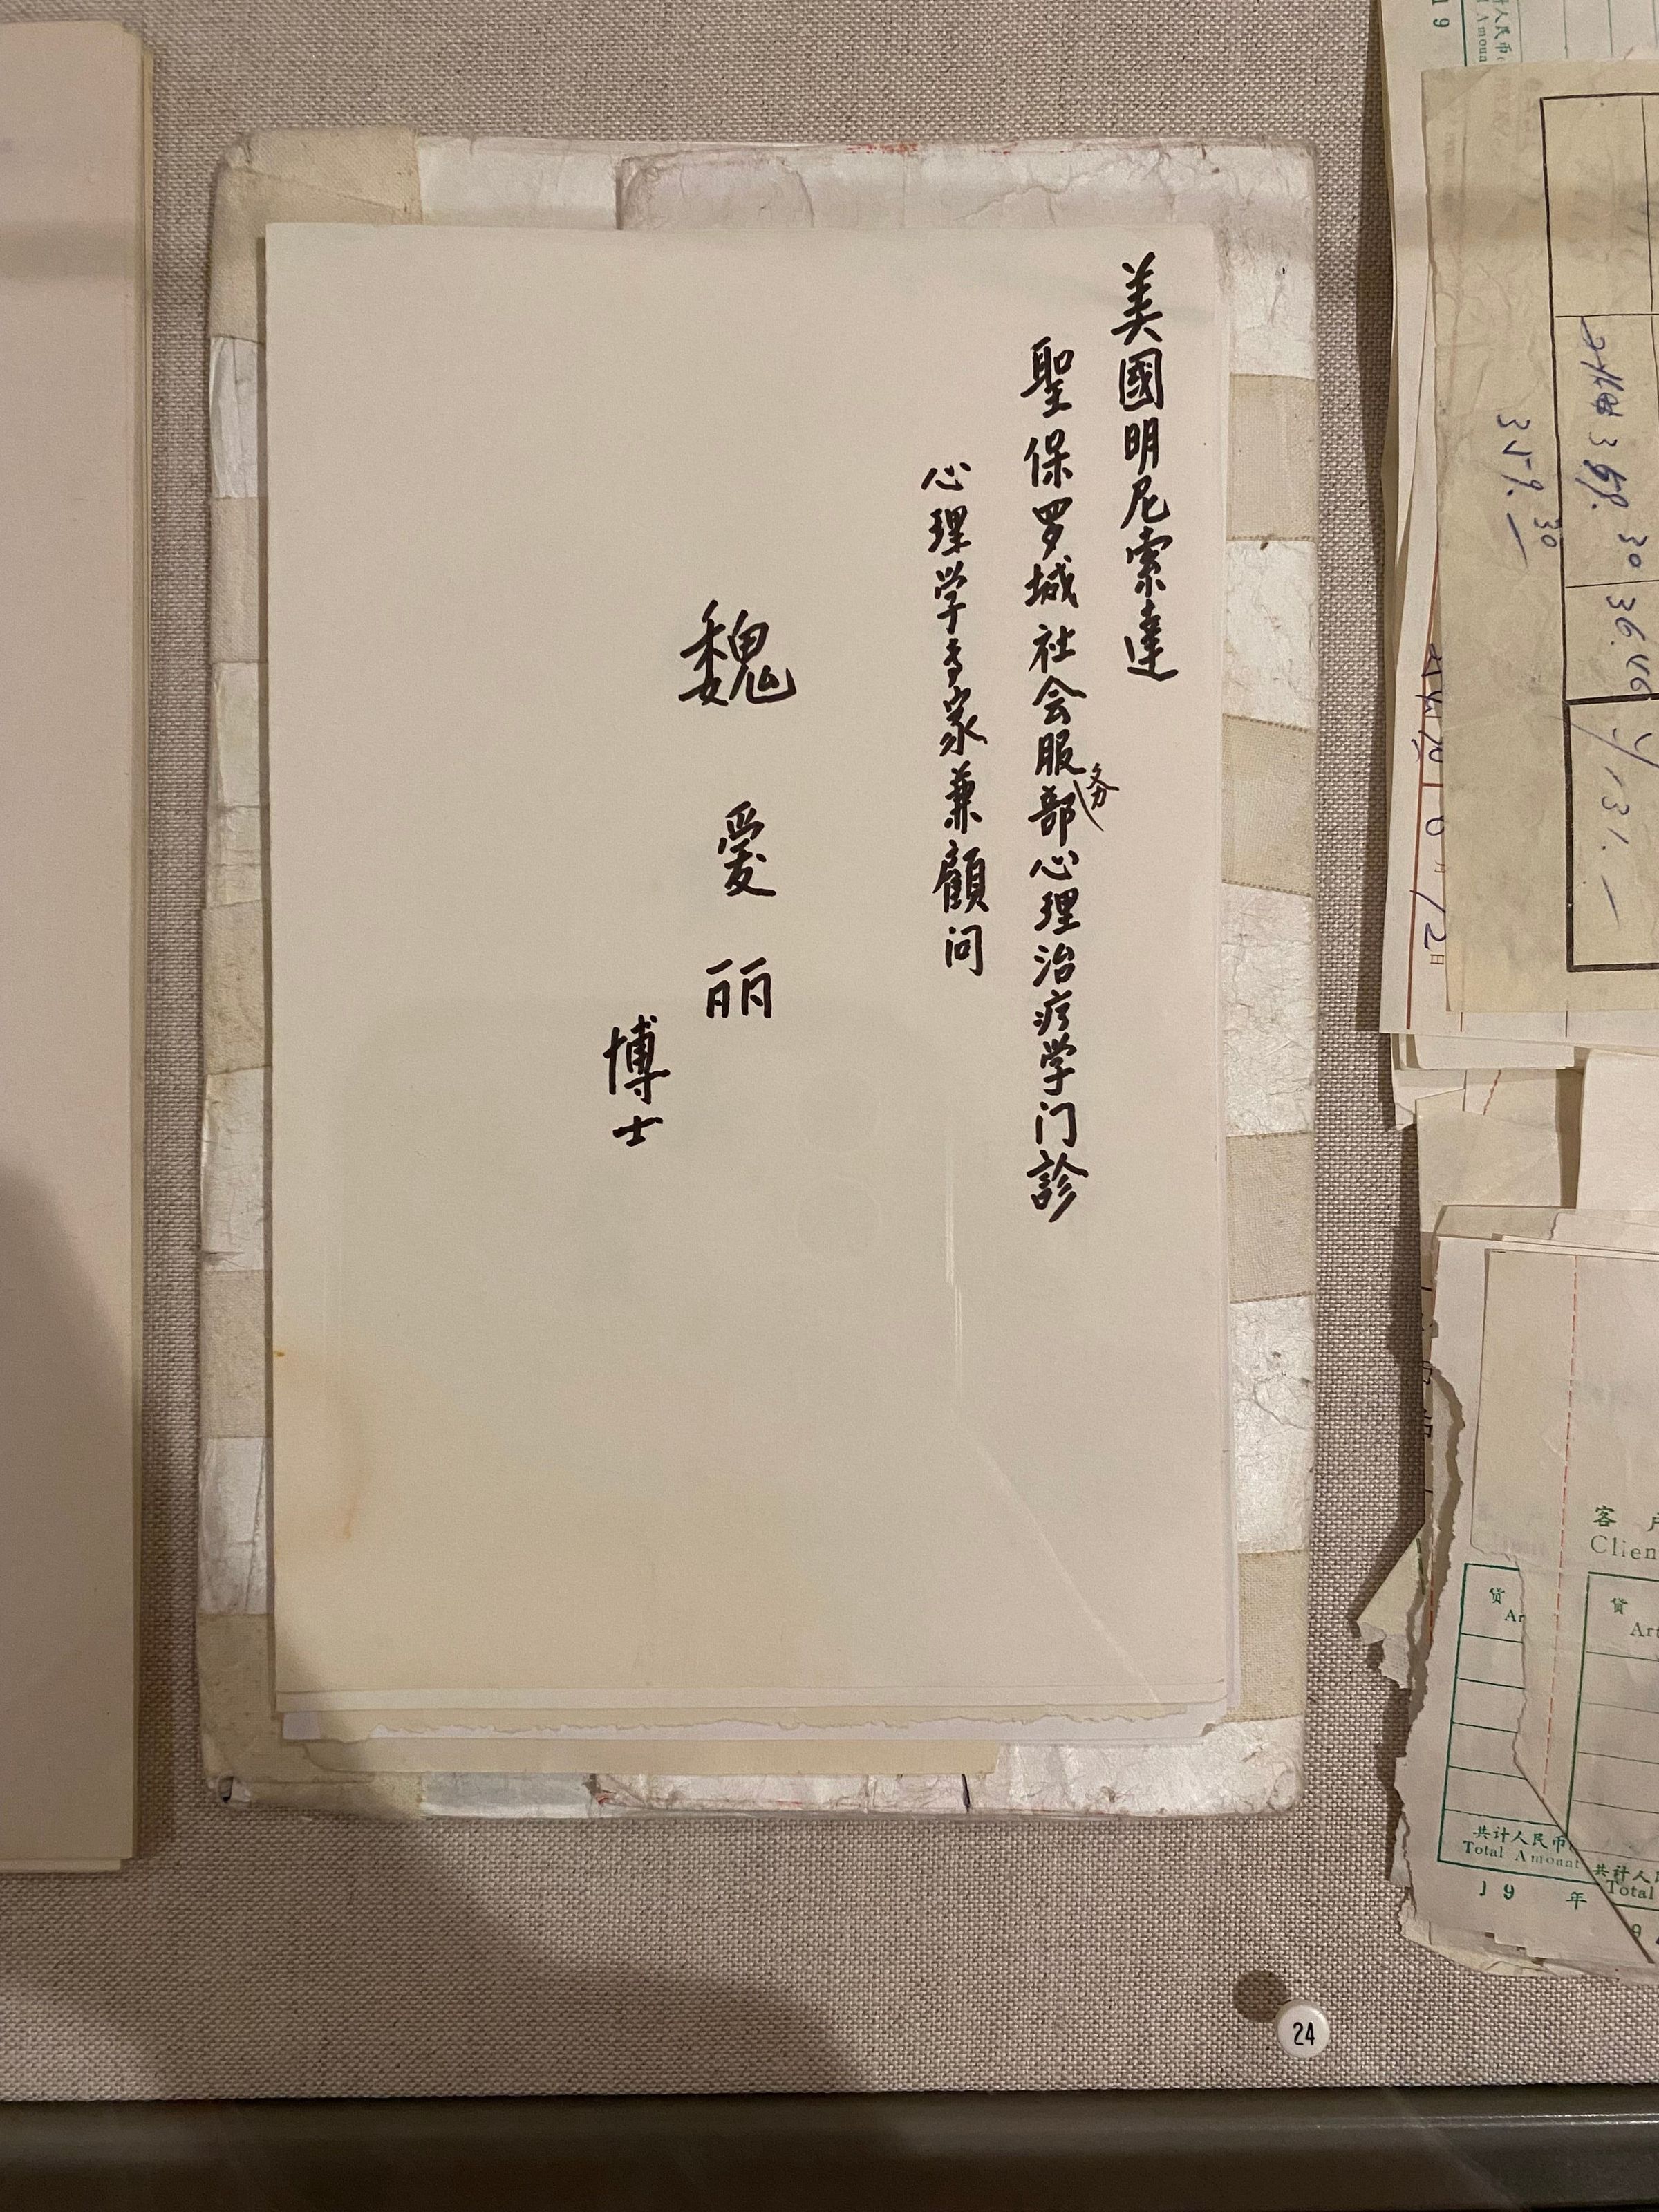 美國明尼索達
聖保罗城社会服务部心理治疗学门診
心理学专家兼顧问
魏愛丽
博士
359.30
36.46
131.
12日
客户
Clien
貨
Ar
貨
Art
共计人民币
Total Amount
19 年
共计人民
Total
24